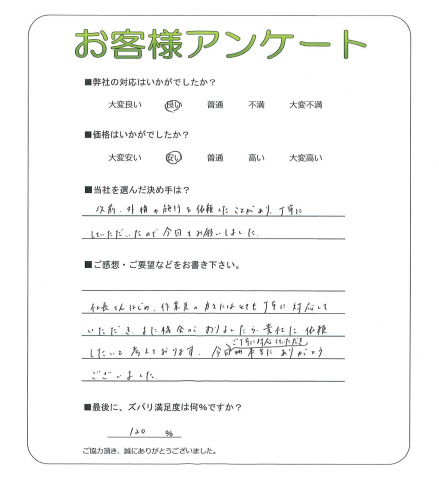 お客様アンケート
■弊社の対応はいかがでしたか？
大変良い 良い 普通 不満 大変不満
■価格はいかがでしたか？
大変安い 安い 普通 高い 大変高い
■当社を選んだ決め手は？
以前、外構の施行を依頼したことがあり、丁寧に
していただいたので今回もお願いしました。
■ご感想・ご要望などをお書き下さい。
社長さんはじめ、作業員の方たちはとても丁寧に対応して
いただき、また機会がありましたら、貴社に依頼
したいと考えております。今回
ご丁寧に対応していただき
本当にありがとう
ございました。
■最後に、ズバリ満足度は何％ですか？
120 ％
ご協力頂き、誠にありがとうございました。